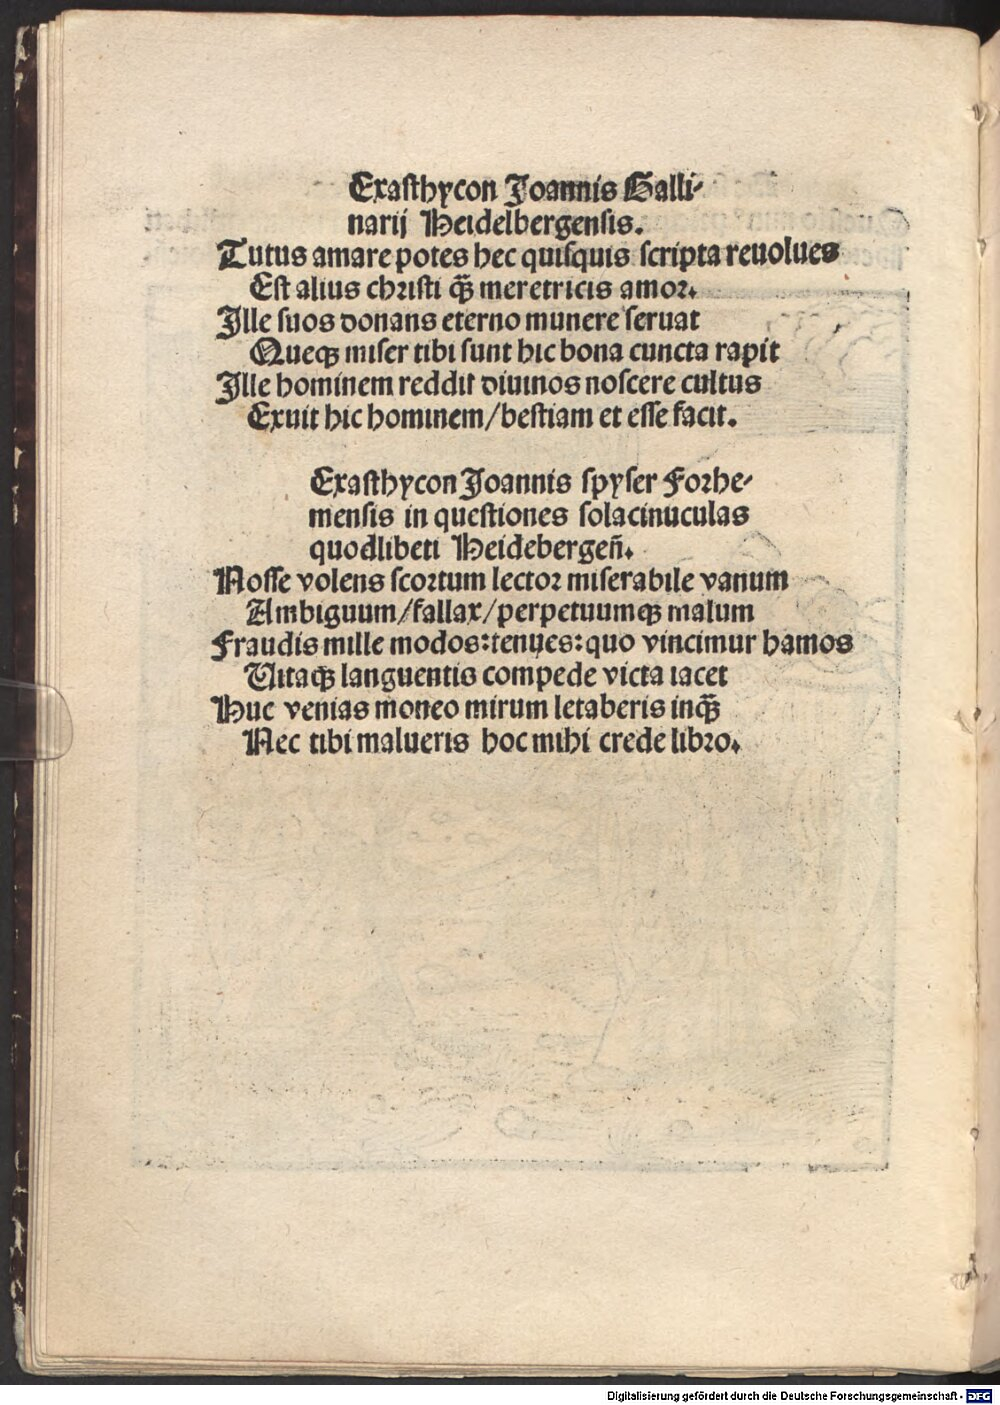 Exasthycon Joannis Galli⸗
narij Heidelbergensis.
Tutus amare potes hec quisquis scripta reuolues
Est alius christi q̄ȝ meretricis amor.
Ille suos donans eterno munere seruat
Queqȝ miser tibi sunt hic bona cuncta rapit
Ille hominem reddit diuinos noscere cultus
Exuit hic hominem/bestiam et esse facit.
Exasthycon Joannis spyser Forhe⸗
mensis in questiones solacinuculas
quodlibeti Heidebergen̄.
Nosse volens scortum lector miserabile vanum
Ambiguum/fallax/perpetuumqȝ malum
Fraudis mille modos:tenues:quo vincimur hamos
Vitaqȝ languentis compede victa iacet
Huc venias moneo mirum letaberis inq̄ȝ
Nec tibi malueris hoc mihi crede libro.
Digitalisierung gefördert durch die Deutsche Forschungsgemeinschaft - DFG